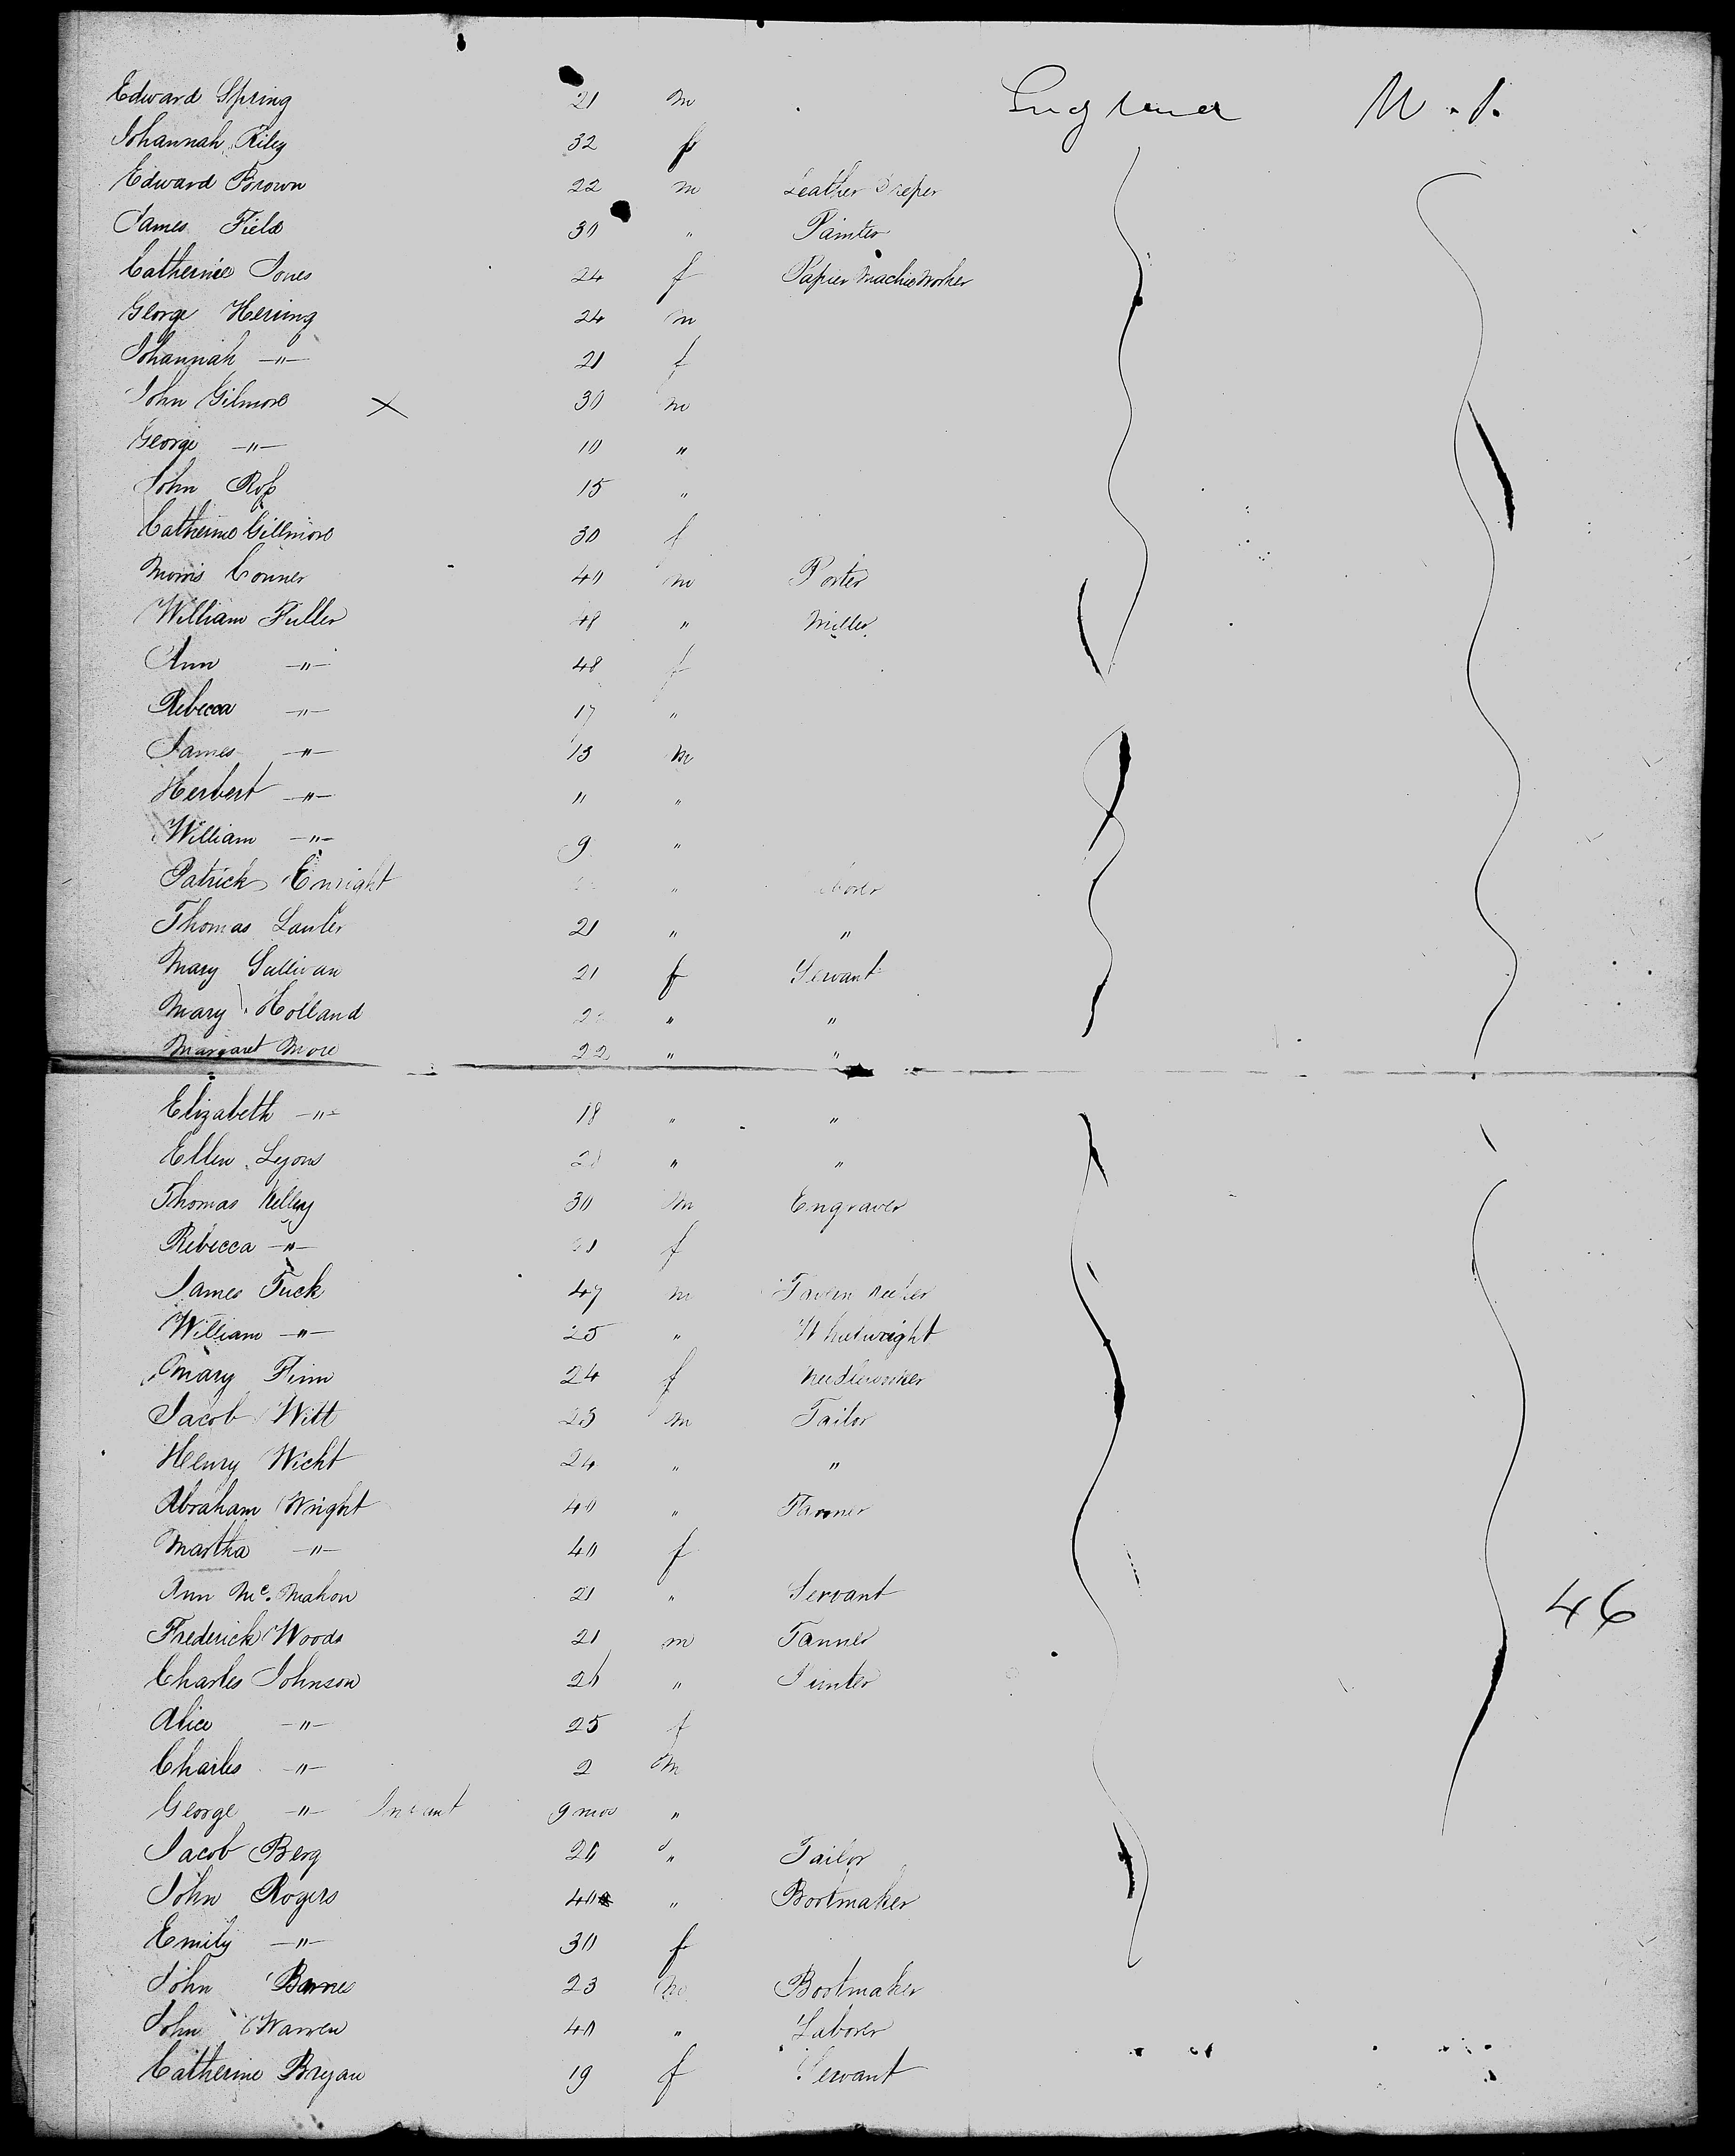 Edward Spring 21 m England U.S.
Johannah Riley 32 f
Edward Brown 22 m Leather
James Field 30 " Painter
Catherine Jones 24 f Papier Machie Worker
George Hering 24 m
Johannah -"- 21 f
John Gilmore × 30 m
George -"- 10 "
John Roſs 15 "
Catherine Gillmore 30 f
Morris Conner 40 m Porter
William Fuller 48 " Miller
Ann -"- 48 f
Rebecca -"- 17 "
James -"- 13 m
Herbert -"- 11 "
William -"- 9 "
Patrick Enright "
Thomas Lawler 21 " "
Mary Sullivan 21 f Servant
Mary Holland " "
Margaret More 22 " "
Elizabeth -"- 18 " "
Ellen Lyons " "
Thomas Kelley 30 m Engraver
Rebecca -"- f
James Tuck 47 m Tavern Keeper
William -"- 25 " Wheelwright
Mary Flinn 24 f Needleworker
Jacob Witt 23 m Tailor
Henry Wicht 24 " "
Abraham Wright 40 " Farmer
Martha -"- 40 f
Ann Mc. Mahon 21 " Servant 46
Frederick Woods 21 m Tanner
Charles Johnson 26 "
Alice -"- 25 f
Charles -"- 2 m
George -"- Infant 9 mos "
Jacob Berg 20 " Tailor
John Rogers 40 " Bootmaker
Emily -"- 30 f
John Barnes 23 m Bootmaker
John Warren 40 " Laborer
Catherine Bryan 19 f Servant